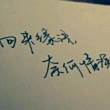 回来缘浅
奈何情深